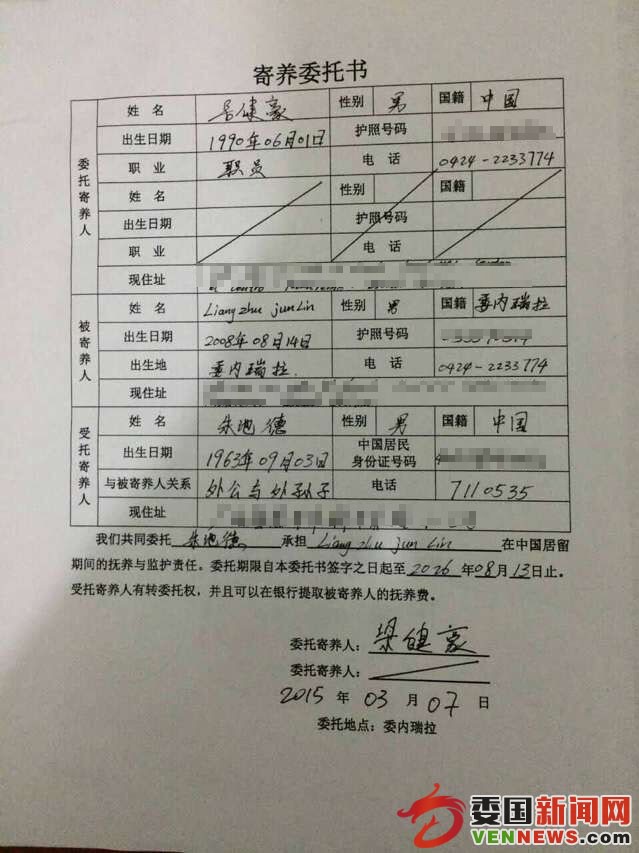 寄养委托书
委托寄养人
姓 名 梁健豪 性别 男 国籍 中国
出生日期 1990年06月01日 护照号码
职 业 职员 电 话 0424-2233774
姓 名 性别 国籍
出生日期 护照号码
职 业 电 话
现住址
被寄养人
姓 名 Liang zhu jun Lin 性别 男 国籍 委内瑞拉
出生日期 2008年08月14日 护照号码
出生地 委内瑞拉. 电 话 0424-2233774
现住址
受托寄养人
姓 名 朱池德 性别 男 国籍 中国
出生日期 1963年09月03日 中国居民身份证号码
与被寄养人关系 外公与外孙子 电话 7110535
现住址
我们共同委托 朱池德 承担 Liang zhu jun Lin 在中国居留
期间的抚养与监护责任。委托期限自本委托书签字之日起至 2026 年 08 月 13 日止。
受托寄养人有转委托权，并且可以在银行提取被寄养人的抚养费。
委托寄养人：梁健豪
委托寄养人：
2015 年 03 月 07 日
委托地点：委内瑞拉
委国新闻网
VENNEWS.COM